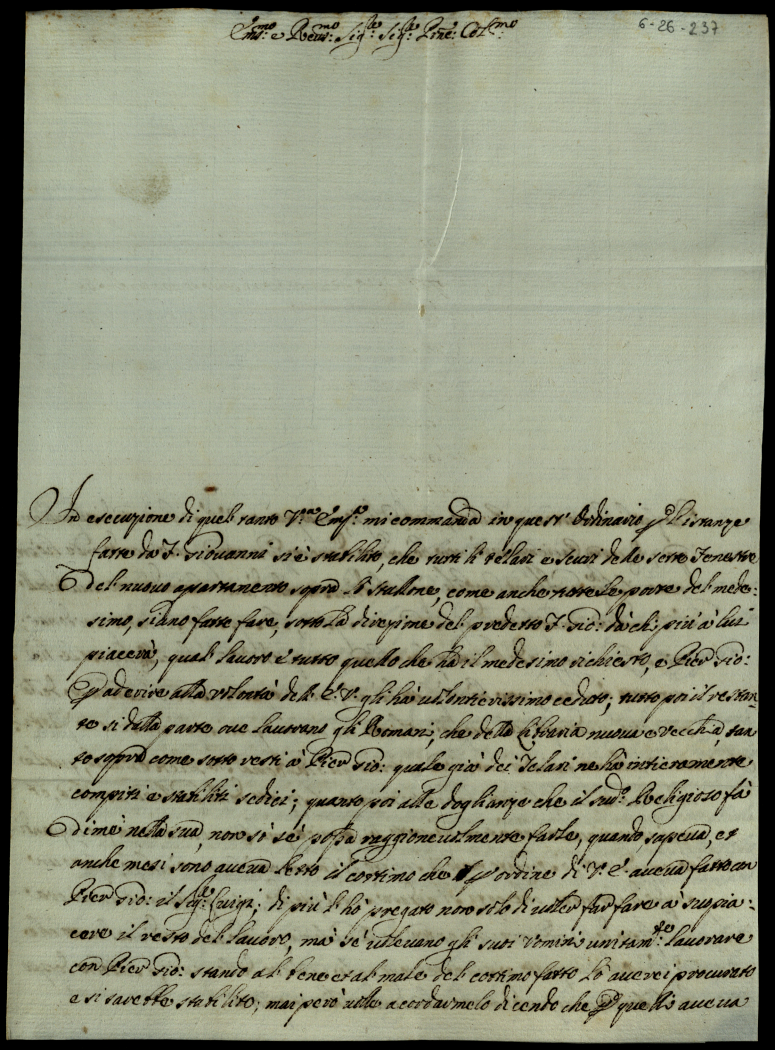 6-26-237
Em̃o: e Reu:mo Sig:re Sig:re Prñe: Col:mo
In esecuzione di quel tanto V.ra Em.za mi commanda in quest' Ordinario p l'istanze
fatte da F. Giouanni si è stabilito, che tutti li telari e scuri delle sette fenestre
del nuouo apartamento sopra lo stallone, come anche tutte le porte del mede:
simo, siano fatte fare, sotto la direzione del predetto F. Gio: da chi più a lui
piacerà, qual lauoro è tutto quello che ha il medesimo richiesto, e Pier Gio:
p aderire alla uolontà dell' E. V. gli ha uolontierissimo ceduto; tutto poi il restan-
te si dalla parte oue lauorano gli Romani, che della libraria nuoua e uecchia, tan
to sopra come sotto resti à Pier Gio: quale già dei Telari ne hà intieramente
compiti e stabiliti sedici; quanto poi alle doglianze che il sud.o Religioso fà
di me nella sua, non sò se possa raggioneuolmente farle, quando sapeua, et
anche mesi sono aueua letto il cottimo che p ordine di V. E. aueua fatto con
Pier Gio: il Sig.re Luigi; di più l'hò pregato non solo di uoler far fare a suo pia:
cere il resto del lauoro, mà se uoleuano gli suoi uomini unitam.te lauorare
con Pier Gio: stando al bene et al male del cottimo fatto lo auerei procurato
e si sarebbe stabilito; mai però uolle accordarmelo dicendo che p quelli aueua